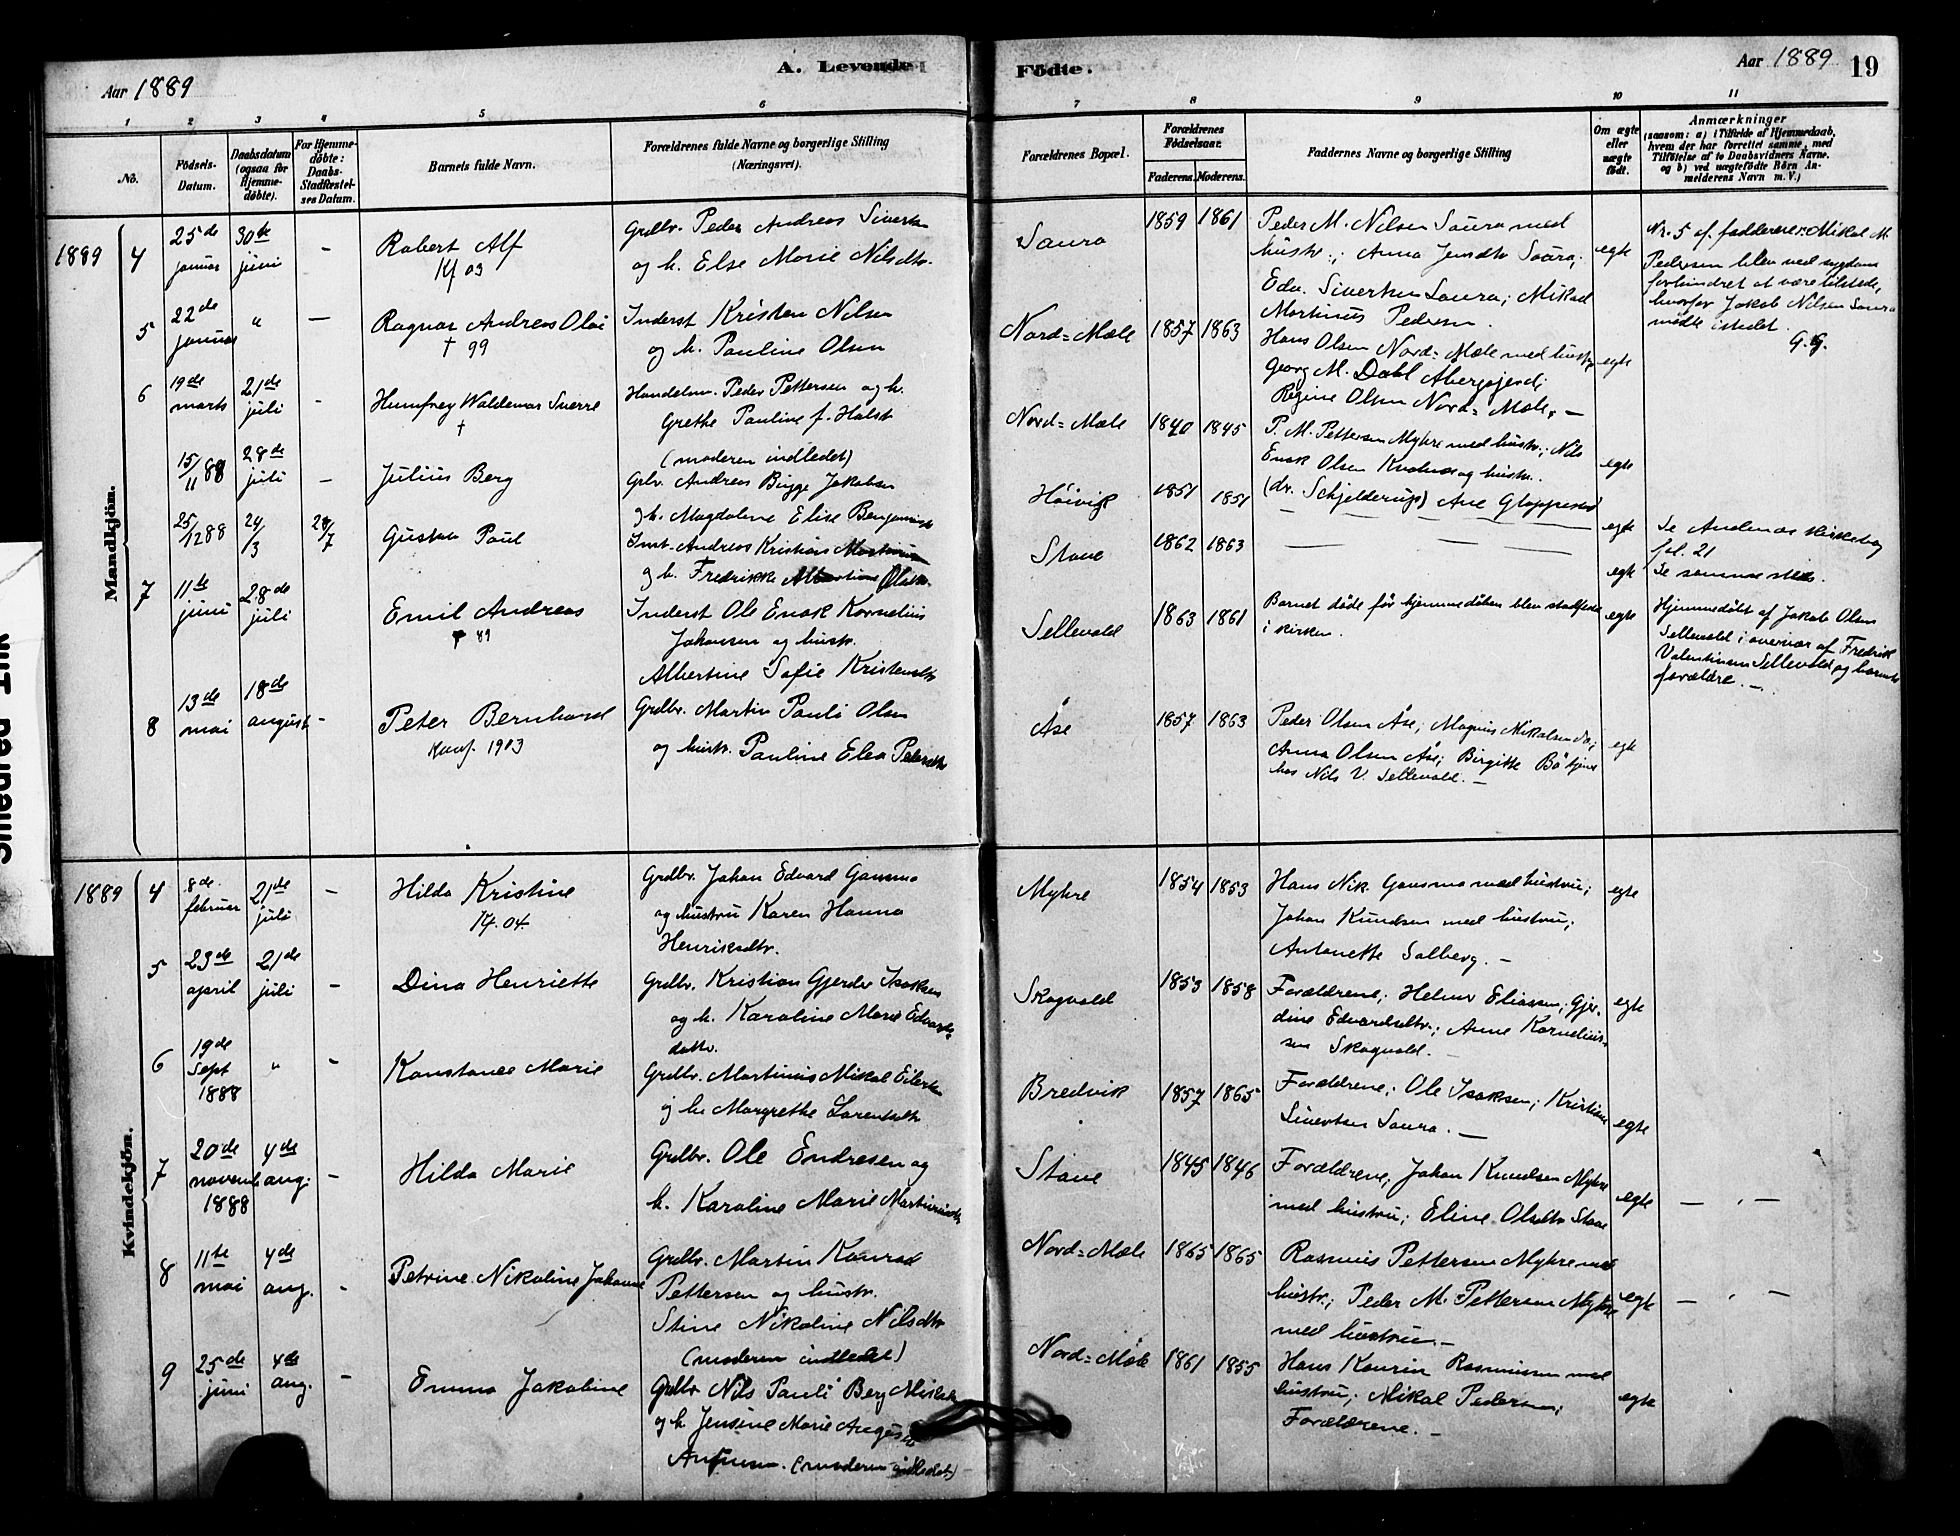 Aar 1889
A. Levende
1 2 3 4 5 6
No.
Födsels-
Datum.
Daabsdatum
(ogsaa for
Hjemme-
döbte).
For Hjemme-
döbte:
Daabs-
Stadfæstel-
ses Datum.
Barnets fulde Navn.
Forældrenes fulde Navne og borgerlige Stilling
(Næringsvei).
Mandkjön.
1889 4
25de
januar
30te
juni
-
Robert Alf
Kf 03
Grdbr. Peder Andreas Sivertsen
og h. Else Marie Nilsdtr.
5
22de
januar
"
-
Ragnar Andreas Olai
† 99
Inderst Kristen Nilsen
og h. Pauline Olsen
6
19de
marts
21de
juli
-
Humfrey Waldemar Sverre
†
Handelsm. Peder Pettersen og h.
Grethe Pauline f. Holst
(moderen indledet)
15/11 88
28de
juli
-
Julius Berg
Gbr. Andreas Bugge Jakobsen
og h. Magdalene Elise
25/12 88
24/3
28/7
Gustav Paul
Inst. Andreas Kristian
og h. Fredrikke
7
11te
juni
28de
juli
Emil Andreas
† 89
Inderst Ole Enok Kornelius
Johansen og hustr.
Albertine Sofie Kristensdtr
8
13de
mai
18de
august
-
Peter Bernhard
Konf. 1903
Grdbr. Martin Pauli Olsen
og hustr. Pauline Elea Pedersdtr
Kvindekjön.
1889 4
8de
februar
21de
juli
-
Hilda Kristine
Kf. 04.
Grdbr. Johan Edvard Gansmo
og hustru Karen Hanna
Henriksdtr.
5
23de
april
21de
juli
-
Dina Henriette
Grdbr. Kristian Gjerder Isaksen
og h. Karoline Marie Edvards-
dattr.
6
19de
Sept
1888
"
-
Konstance Marie
Grdbr. Martinus Mikal Eilertsen
og h. Margrethe Lorentsdtr
7
20de
novemb
1888
4de
aug.
-
Hilda Marie
Grdbr. Ole Endresen og
h. Karoline Marie Martinusdtr
8
11te
mai
4de
aug.
-
Petrine Nikoline Johanna
Grdbr. Martin Konrad
Pettersen og hustr.
Stine Nikoline Nilsdtr
(moderen indledet)
9
25de
juni
4de
aug.
-
Emma Jakobine
Grdbr Nils Pauli Berg
og h. Jensine Marie
(moderen indledet)
Födte.
Aar 1889
19
7 8 9 10 11
Forældrenes Bopæl.
Forældrenes
Födselsaar.
Faderens. Moderens.
Faddernes Navne og borgerlige Stilling
Om ægte
eller
uægte
født.
Anmærkninger
(saasom: a) i Tilfælde af Hjemmedaab,
hvem der har forrettet samme, med
Tilföielse af to Daabsvidners Navne.
og b) ved uægtefödte Börn An-
melderens Navn m. V.)
Saura
1859 1861
Peder M. Nilsen Saura med
hustr.; Anna Jensdtr Saura;
Edv. Sivertsen Saura; Mikael
Martinus Pedersen.
egte
Nr. 5 af fadderne: Mikal M.
Pedersen blev ved sygdom
forhindret at være tilstede,
hvorfor Jakob Nilsen Saura
mødte istedet.
G. G.
Nord=Mæle
1857 1863
Hans Olsen Nord=Mæle med hustr;
Georg M. Dahl
Regine Olsen Nord=Mæle. -
egte
Nord=Mæle
1840 1845
P. M. Pettersen Myhre med hustr.; Nils
Enok Olsen og hustr.
egte
Höivik
1851 1851
(dr. Schjelderup) Ane
egte
Se Andenes kirkebog
fol. 21
Stave
1862 1863
egte
Se samme sted.
Sellevold
1863 1861
Barnet døde før hjemmedåben blev stadfæstet
i kirken.
egte
Hjemmedøbt af Jakob Olsen
Sellevold i overvær af Fredrik
Valentinsen Sellevold og barnets
forældre. -
Åse
1857 1863
Peder Olsen Åse; Magnus Mikalsen do;
Anna Olsen Åse; Birgitte Bö tjener
hos Nils V. Sellevold. -
egte
Myhre
1854 1853
Hans Nik. Gansmo med hustru;
Johan Knudsen med hustru;
Antonette Solberg. -
egte
Skogvold
1853 1858
Forældrene; Helmer Eliassen; Gjer-
dine Edvardsdtr.; Anne Kornelius-
sen Skogvold. -
egte
Bredvik
1857 1865
Forældrene; Ole Isaksen; Kristian
Sivertsen Saura. -
egte
Stave
1845 1846
Forældrene, Johan Knudsen Myhre
med hustru; Eline Olsdtr Stave
egte
- " -
Nord=Mæle
1865 1865
Rasmus Pettersen Myhre med
hustr.; Peder M. Pettersen Myhre
med hustru. -
egte
- " -
Nord=Mæle
1861 1855
Hans Konrin Rasmussen med
hustru; Mikal Pedersen;
Forældrene. -
egte